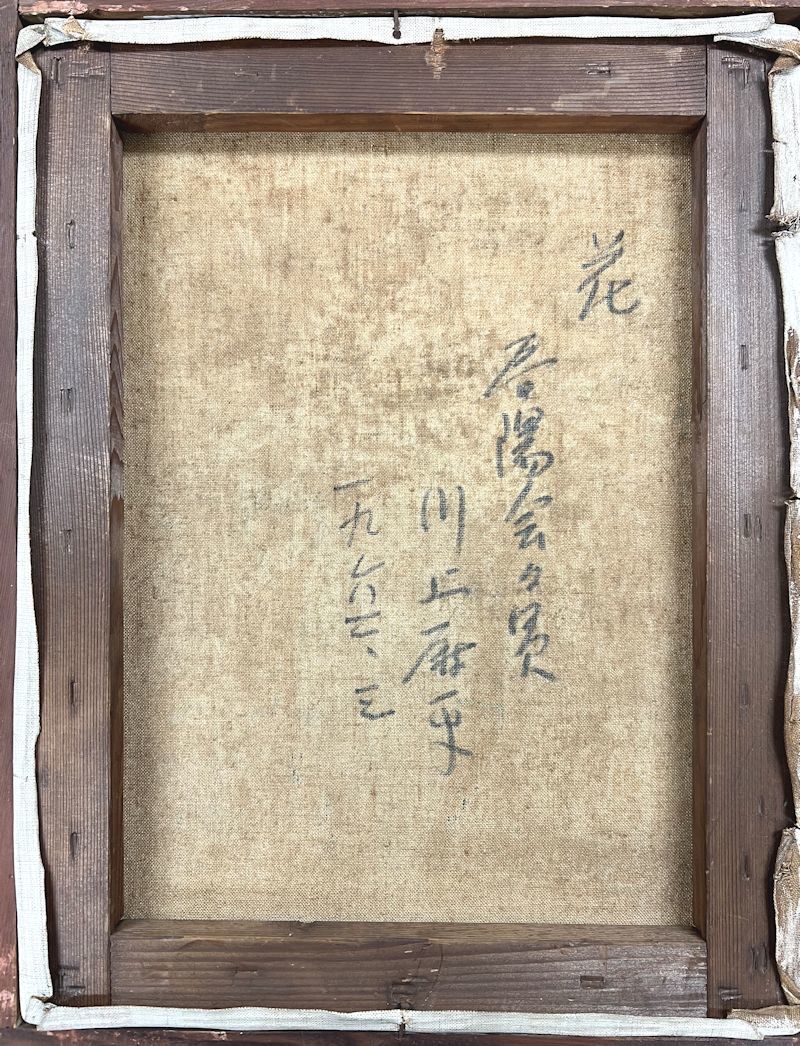 花
春陽会々員
川上尉平
一九六、三